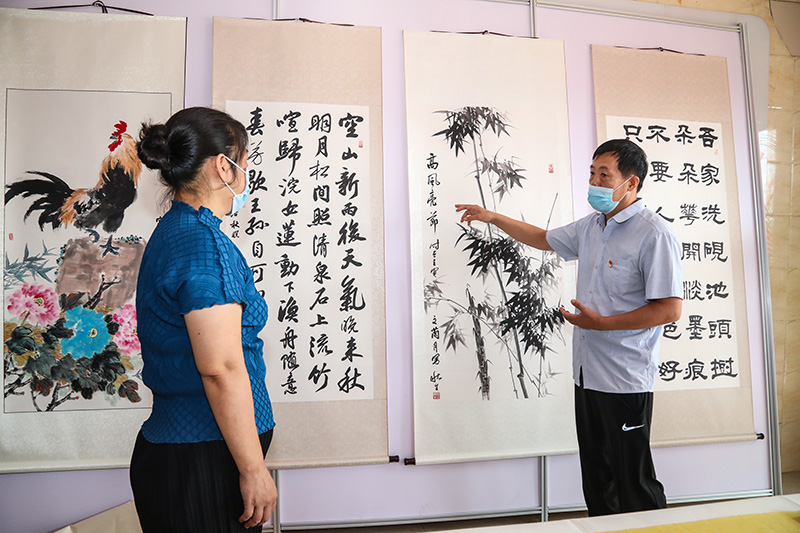 空山新雨後天氣晚来秋
明月松间照清泉石上流竹
喧歸浣女蓮動下漁舟随意
春芳歇王孙自可
高風亮節
吾家洗硯池頭樹
朵朵華開淡墨痕
不要人 色好
只